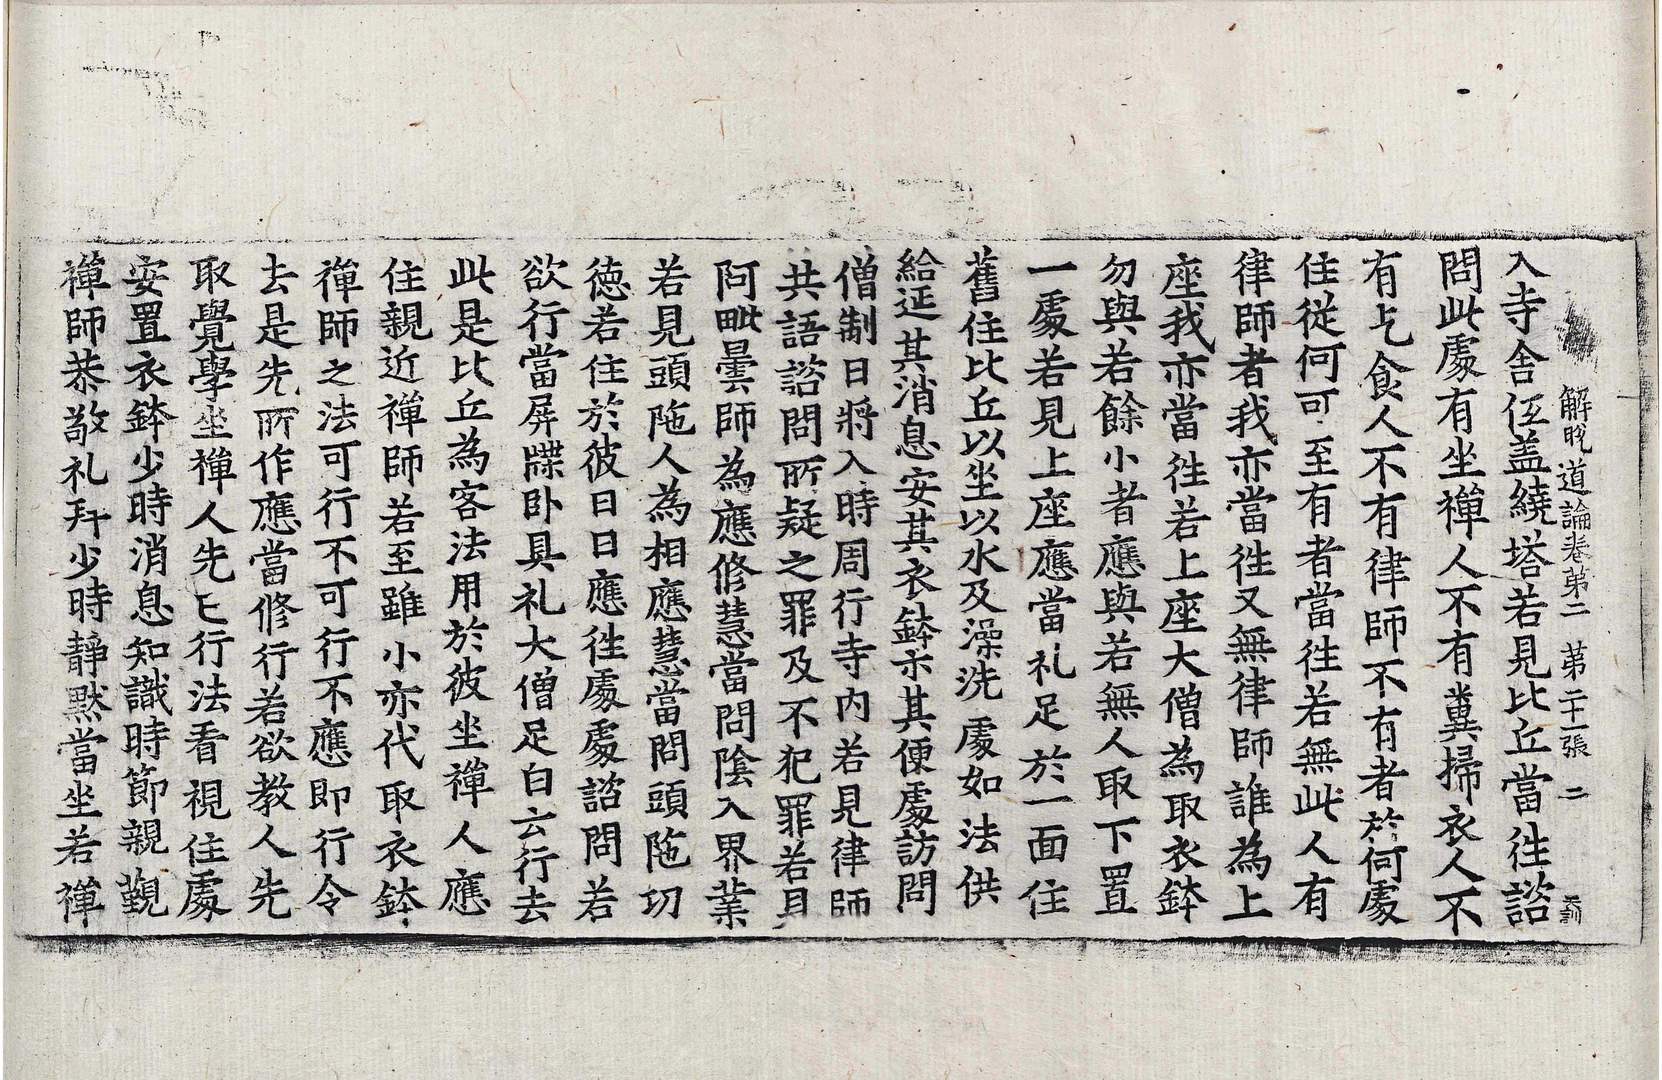 解脫道論卷第二 第二十一張 二
入寺舍伍盖繞塔若見比丘當往諮
問此處有坐禪人不有糞掃衣人不
有乞食人不有律師不有者於何處
住從何可至有者當往若無此人有
律師者我亦當往又無律師誰為上
座我亦當往若上座大僧為取衣鉢
勿與若餘小者應與若無人取下置
一處若見上座應當礼足於一面住
舊住比丘以坐以水及澡洗處如法供
給延其消息安其衣鉢示其便處訪問
僧制日將入時周行寺內若見律師
共語諮問所疑之罪及不犯罪若見
阿毗曇師為應修慧當問陰入界業
若見頭陁人為相應慧當問頭陁功
德若住於彼日日應往處處諮問若
欲行當屏牒卧具礼大僧足白云行去
此是比丘為客法用於彼坐禪人應
住親近禪師若至雖小亦代取衣鉢
禪師之法可行不可行不應即行令
去是先所作應當修行若欲教人先
取覺學坐禪人先已行法看視住處
安置衣鉢少時消息知識時節親觐
禪師恭敬礼拜少時靜默當坐若禪